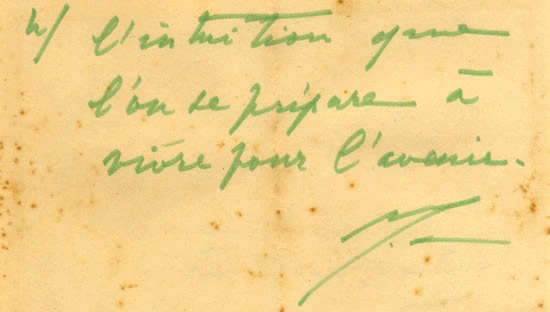 4/ l'intuition que
l'on se prépare à
vivre pour l'avenir.